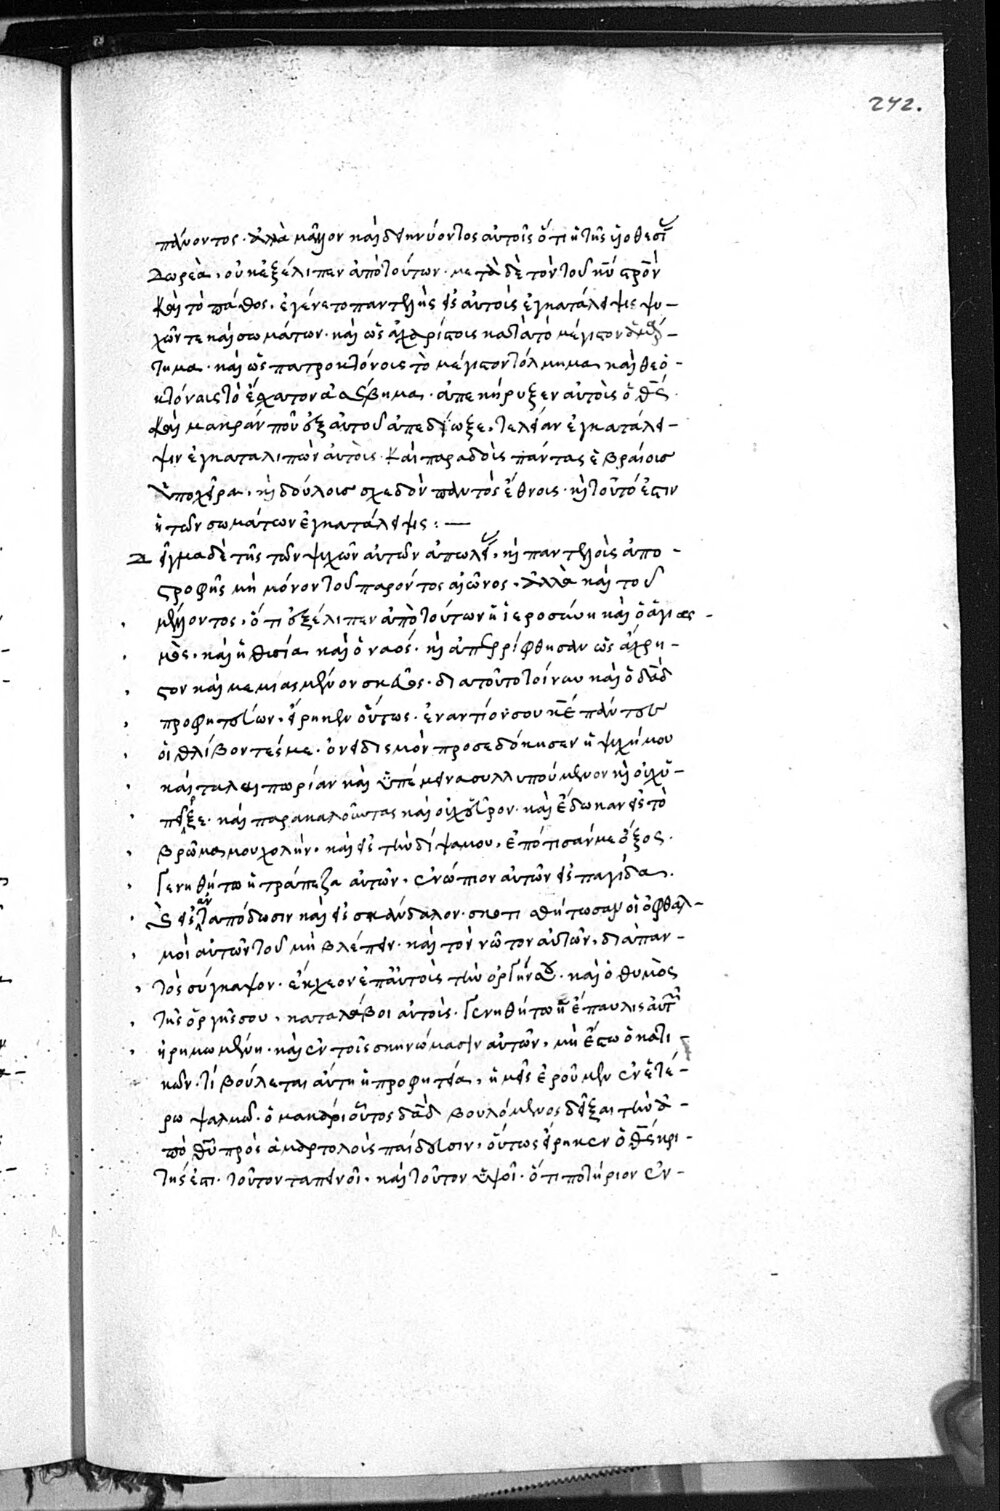 242.
παύοντος· ἀλλὰ μᾶλλον καὶ δεικνύοντος αὐτοῖς ὅτι ἡ τῆς υἱοθεσί
δωρεὰ, οὐκ ἐξέλιπεν ἀπὸ τούτων· μετὰ δὲ τὸν τοῦ κυ στρὸν
καὶ τὸ πάθος, ἐγένετο παντελὴς εἰς αὐτοὺς ἐγκατάλειψις ψυ-
χῶν τε καὶ σωμάτων· καὶ ὡς ἀχαρίστοις κατὰ τὸ μέγιστον
τημα· καὶ ὡς πατροκτόνοις τὸ μέγιστον τόλμημα καὶ θεο-
κτόνοις τὸ ἔσχατον ἀσέβημα· ἀπεκήρυξεν αὐτοὺς ὁ θς
καὶ μακράν που ἐξ αὐτοῦ ἀπεδίωξε, τελείαν ἐγκατάλει-
ψιν ἐγκαταλιπὼν αὐτοὺς· καὶ παραδοὺς πάντας ἑβραίους
ὑποχείρα, κὴ δούλους σχεδὸν παντὸς ἔθνους· κὴ τοῦτό ἐστιν
ἡ τῶν σωμάτων ἐγκατάλειψις :—
Δεῖγμα δὲ τῆς τῶν ψυχῶν αὐτῶν ἀπωλεί, κὴ παντελοῦς ἀπο-
στροφῆς μὴ μόνον τοῦ παρόντος αἰῶνος, ἀλλὰ καὶ τοῦ
μέλλοντος, ὅτι ἐξέλιπεν ἀπὸ τούτων ἡ ἱεροσύνη καὶ ὁ ἁγιασ-
μὸς, καὶ ἡ θυσία καὶ ὁ ναός· κὴ ἀπερρίφθησαν ὡς ἄχρη-
στον καὶ μεμιασμένον σκεῦος· διατοῦτο τοίνυν καὶ ὁ δαδ
προφητεύων, εἴρηκεν οὕτως· ἐναντίον σου κε πάντες
οἱ θλίβοντές με· ὀνειδισμὸν προσεδόκησεν ἡ ψυχή μου
καὶ ταλαιπωρίαν καὶ ὑπέμεινα συλλυπούμενον κὴ οὐχ ὑ-
πῆρξε· καὶ παρακαλοῦντας καὶ οὐχ εὗρον· καὶ ἔδωκαν εἰς τὸ
βρῶμα μου χολὴν, καὶ εἰς τὴν δίψαν μου, ἐπότισάν με ὄξος·
γενηθήτω ἡ τράπεζα αὐτῶν, ἐνώπιον αὐτῶν εἰς παγίδα.
κὴ εἰς ἀνταπόδωσιν καὶ εἰς σκάνδαλον· σκοτισθήτωσαν οἱ ὀφθαλ-
μοὶ αὐτῶν τοῦ μὴ βλέπειν· καὶ τὸν νῶτον αὐτῶν, διάπαν-
τὸς σύγκαψον· ἔκχεον ἐπ αὐτοὺς τὴν ὀργήν σου· καὶ ὁ θυμὸς
τῆς ὀργῆς σου, καταλάβοι αὐτοὺς· γενηθήτω ἡ ἔπαυλις αὐτ
ἠρημωμένη· καὶ ἐν τοῖς σκηνώμασιν αὐτῶν, μὴ ἔστω ὁ κατοι
κῶν· τί βούλεται αὕτη ἡ προφητεία, ἡμεῖς ἐροῦμεν ἐν ἑτέ-
ρω ψαλμῶ· ὁ μακάριος οὗτος δαδ βουλόμενος δεῖξαι τὴν ἀ-
πὸ θυ πρὸς ἁμαρτολοὺς παίδευσιν, οὕτως εἴρηκεν ὁ θς κρι-
τής ἐστι· τοῦτον ταπεινοῖ, καὶ τοῦτον ὑψοῖ· ὅτι ποτήριον ἐν-